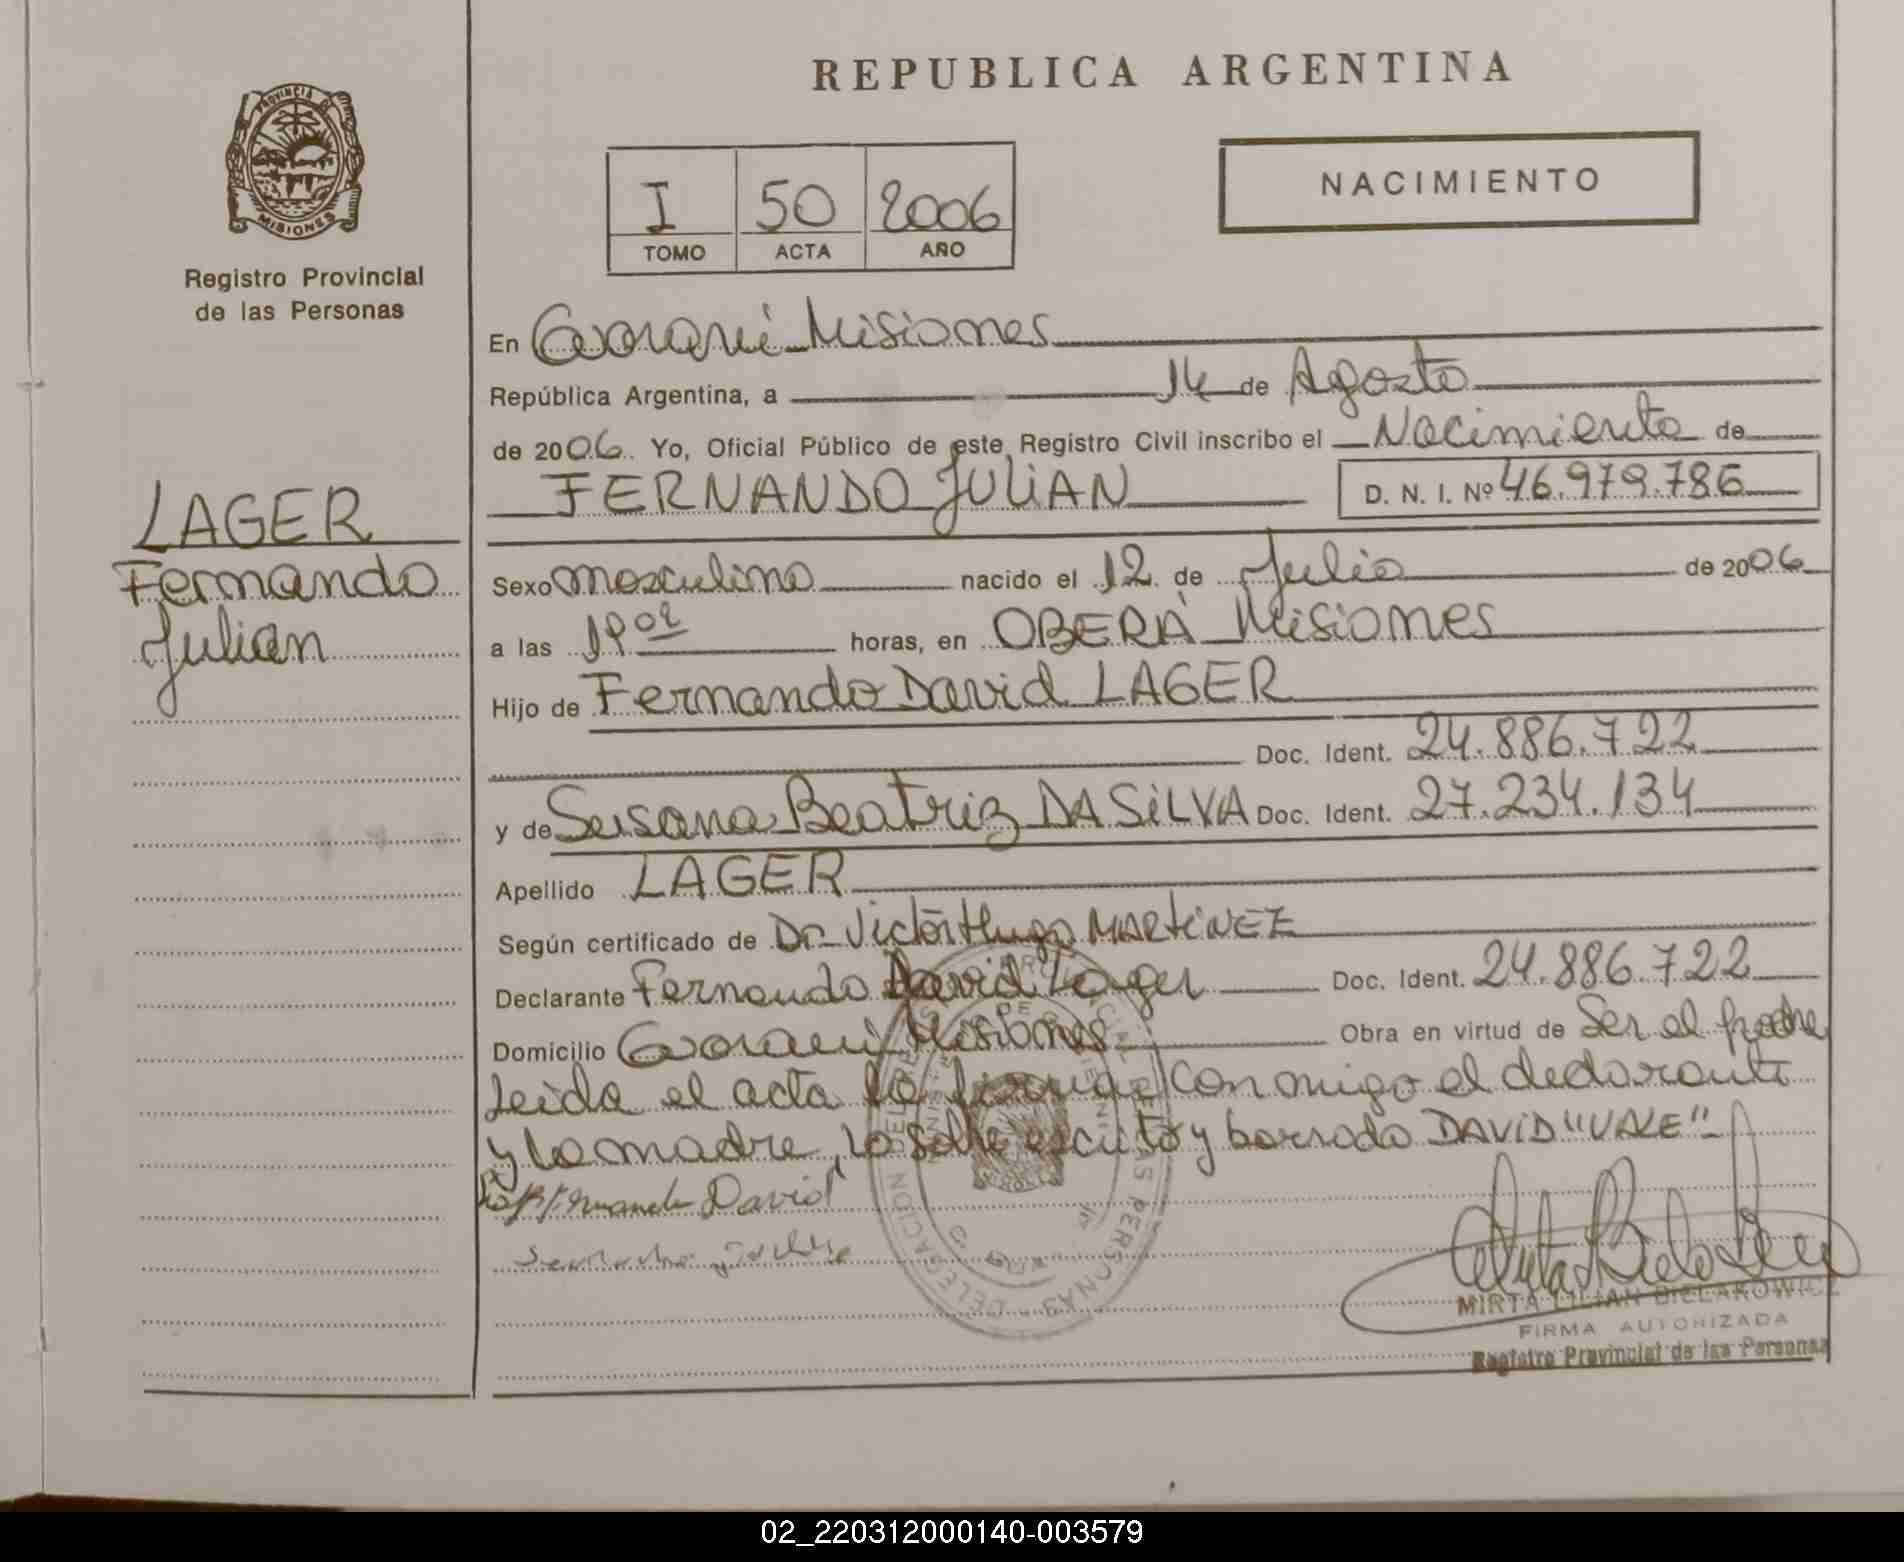 REPUBLICA ARGENTINA
PROVINCIA DE
MISIONES
Registro Provincial
de las Personas
I 50 2006
TOMO ACTA AÑO
NACIMIENTO
LAGER
Fernando
Julian
En Guarani Misiones
República Argentina, a 14 de Agosto
de 2006. Yo, Oficial Público de este Registro Civil inscribo el Nacimiento de
FERNANDO JULIAN D. N. I. Nº 46.979.786
Sexo masculino nacido el 12 de Julio de 2006
a las 19 horas, en OBERÁ Misiones
Hijo de Fernando David LAGER
Doc. Ident. 24.886.722
y de Susana Beatriz DA SILVA Doc. Ident. 27.234.134
Apellido LAGER
Según certificado de Dr. Victor Hugo MARTINEZ
Declarante Fernando David Lager Doc. Ident. 24.886.722
Domicilio Guarani Misiones Obra en virtud de Ser el padre
Leida el acta la firman conmigo el declarante
y la madre, lo sobre escrito y borrado DAVID "VALE"
David
DELEGACION
DE LAS PERSONAS
MIRTA LILIAN BIELAKOWICZ
FIRMA AUTORIZADA
Registro Provincial de las Personas
02_220312000140-003579